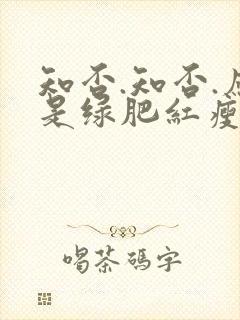 知否.知否.应
是绿肥紅瘦
喝茶碼字